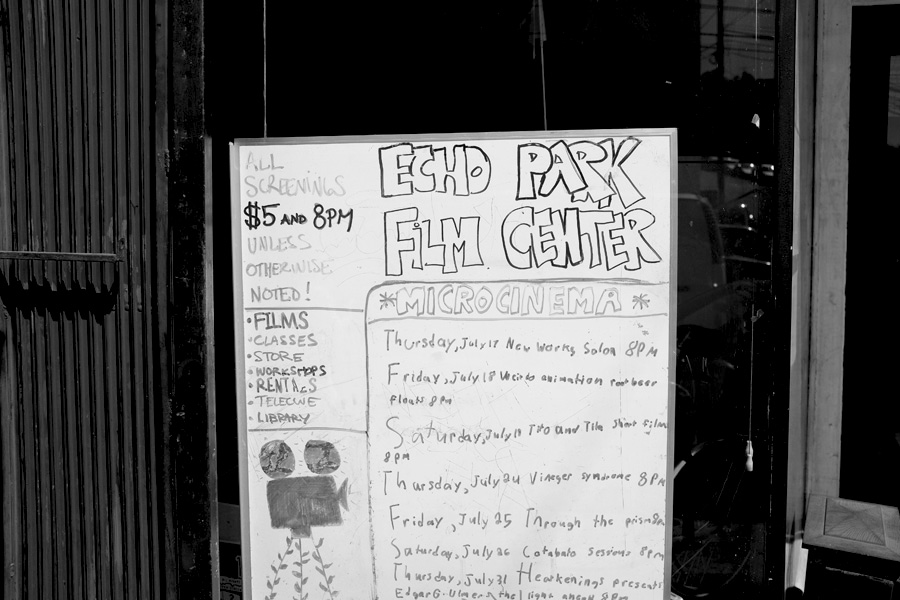 ALL
SCREENINGS
$5 AND 8PM
UNLESS
OTHERWISE
NOTED!
• FILMS
• CLASSES
• STORE
• WORKSHOPS
• RENTALS
• TELECINE
• LIBRARY
ECHO PARK
FILM CENTER
*MICROCINEMA*
Thursday, July 17 New Works Salon 8PM
Friday, July 18 Weirdo animation root beer
floats 8pm
Saturday, July 19 and Tila short films
8pm
Thursday, July 24 Vineger syndrome 8PM
Friday, July 25 Through the prism 8pm
Saturday, July 26 Cotabato sessions 8pm
Thursday, July 31 Hearkenings presents
Edgar G. Ulmers the light ahead 8PM